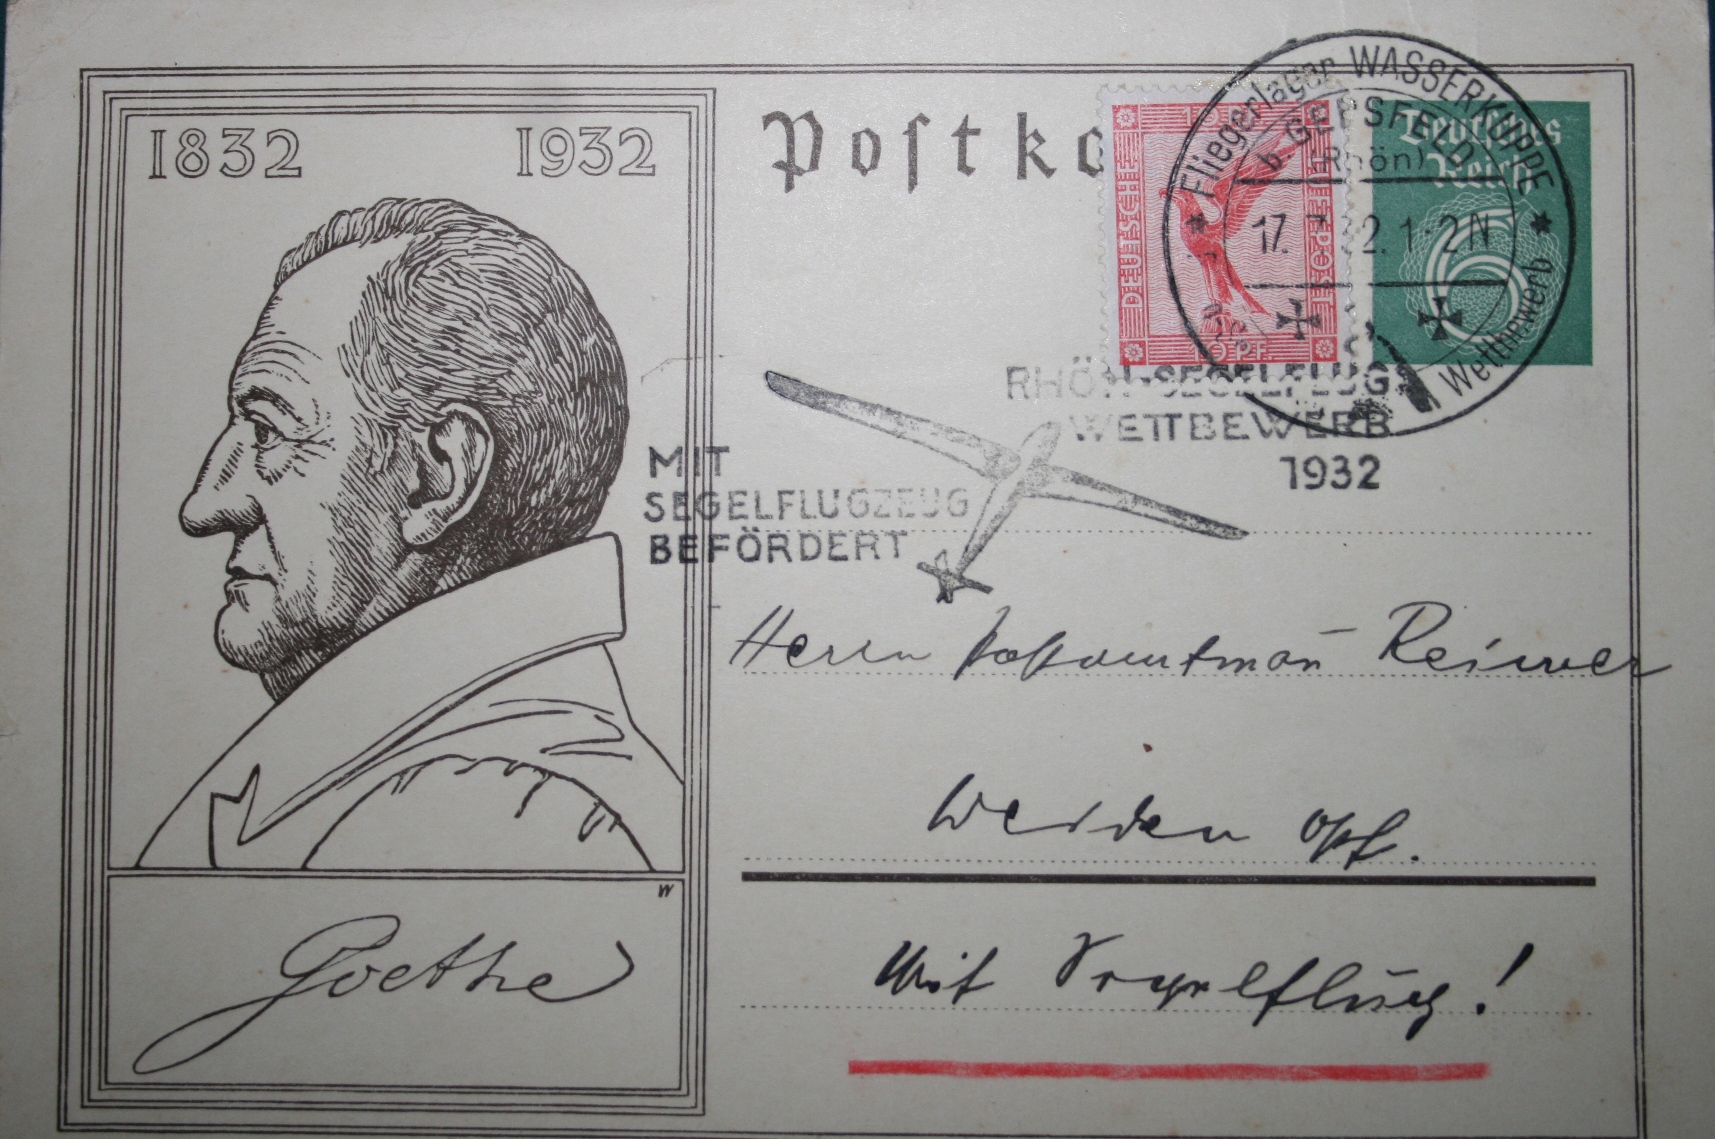 1832 1932
Postka
15 PF
DEUTSCHE
FLUGPOST
15 PF.
Deutsches
Reich
6
Fliegerlager WASSERKUPPE
b GERSFELD
(Rhön)
17. 7. 32. 1-2N
Wettbewerb
RHÖN-SEGELFLUG
WETTBEWERB
1932
MIT
SEGELFLUGZEUG
BEFÖRDERT
Herrn Postamtman̄ Reimer
Weiden Opf.
Mit Segelflug!
W
Goethe